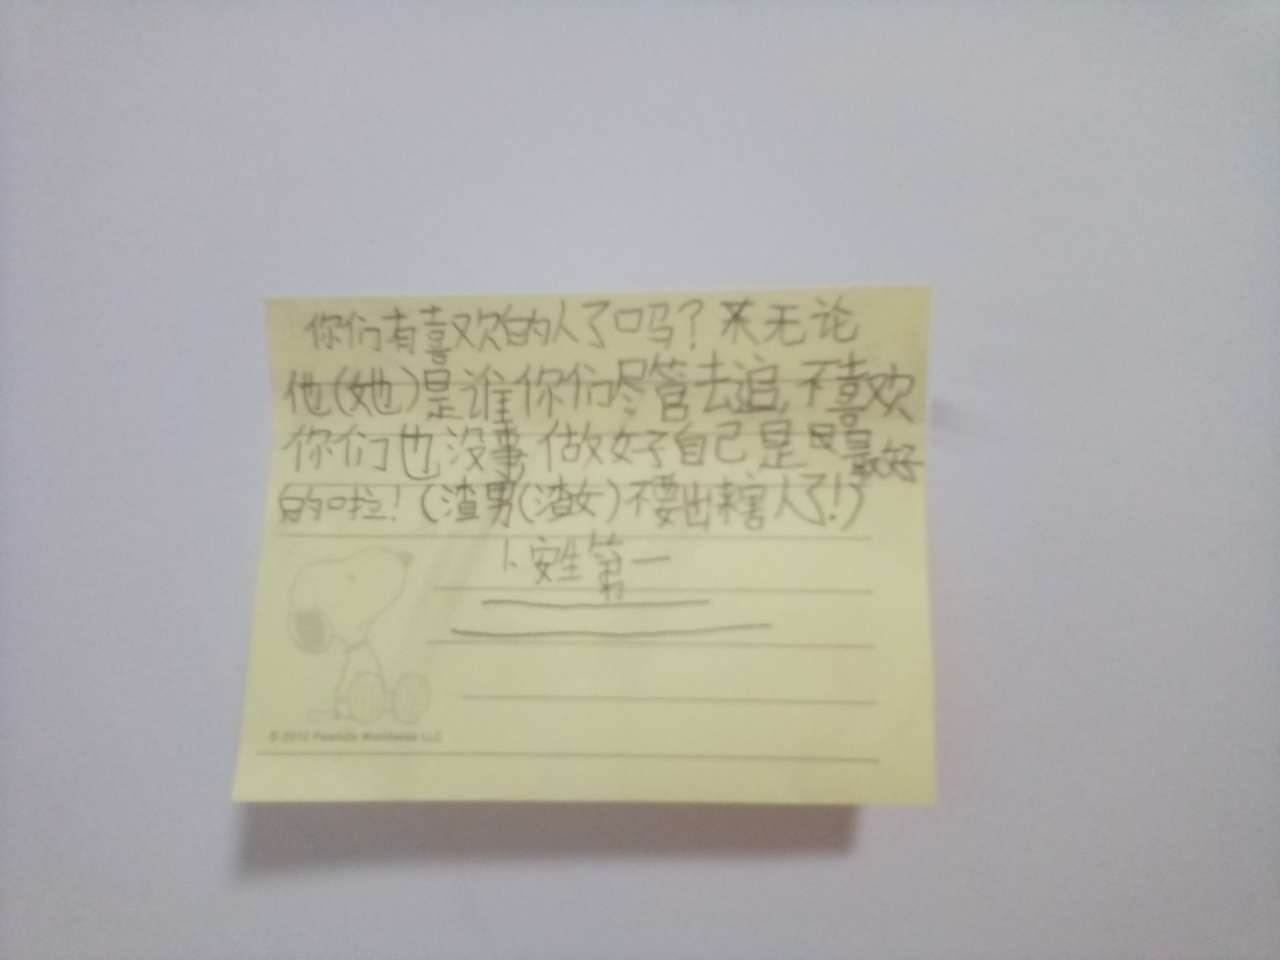 你们有喜欢的人了吗？无论
他(她)是谁你们尽管去追,不喜欢
你们也没事 做好自己是最好
的啦！(渣男(渣女)不要出来害人了!)
卜安生第一
© 2012 Peanuts Worldwide LLC